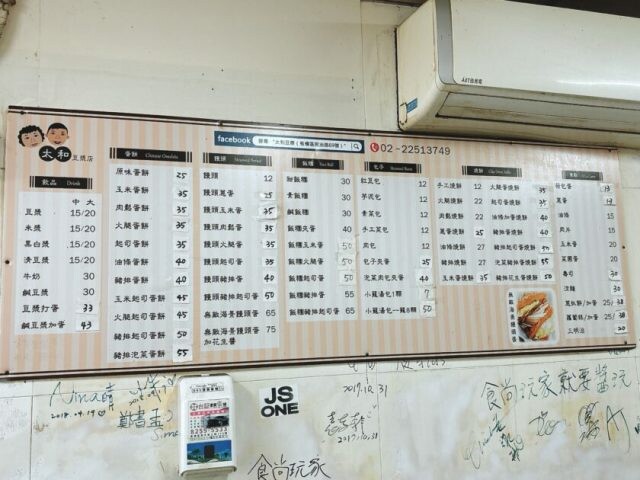 太和
豆漿店
facebook 搜尋 "太和豆漿(板橋區民治街69號)"
02-22513749
飲品 Drink
中 大
豆漿 15/20
米漿 15/20
黑白漿 15/20
清豆漿 15/20
牛奶 30
鹹豆漿 30
豆漿打蛋 33
鹹豆漿加蛋 43
蛋餅 Chinese Omelette
原味蛋餅 25
玉米蛋餅 35
肉鬆蛋餅 35
火腿蛋餅 35
起司蛋餅 35
油條蛋餅 40
豬排蛋餅 40
玉米起司蛋餅 45
火腿起司蛋餅 45
豬排起司蛋餅 50
豬排泡菜蛋餅 55
饅頭 Steamed Bread
饅頭 12
饅頭蔥蛋 25
饅頭玉米蛋 35
饅頭肉鬆蛋 35
饅頭火腿蛋 35
饅頭起司蛋 35
饅頭豬排蛋 40
饅頭豬排起司蛋 50
無敵海景饅頭蛋 65
無敵海景饅頭蛋 75
加花生醬
飯糰 Rice Roll
甜飯糰 30
素飯糰 30
鹹飯糰 30
飯糰夾蛋 40
飯糰玉米蛋 50
飯糰起司蛋 50
飯糰豬排蛋 55
飯糰豬排起司蛋 65
包子 Steamed Buns
紅豆包 12
芋泥包 12
素菜包 12
手工菜包 12
肉包 12
包子夾蛋 25
泡菜肉包夾蛋 40
小籠湯包1顆 7
小籠湯包一籠8顆 50
燒餅
手工燒餅 12
火腿燒餅 22
肉鬆燒餅 22
蔥蛋燒餅 25
油條燒餅 27
豬排燒餅 27
玉米蛋燒餅 35
火腿蛋燒餅 35
起司蛋燒餅 35
油條加蛋燒餅 40
豬排蛋燒餅 40
豬排起司蛋燒餅 50
泡菜豬排蛋燒餅 55
豬排花生蛋燒餅 50
無敵海景饅頭蛋
荷包蛋 13
蔥蛋 13
油條 15
肉片 15
玉米蛋 20
壽司 30
涼麵 30
蔥抓餅/加蛋 25/38
蘿蔔糕/加蛋 25/38
三明治 20
Nina
2018.04.19
JS
ONE
2017.10.31
2017.10.31
食尚玩家就要醬玩
食尚玩家